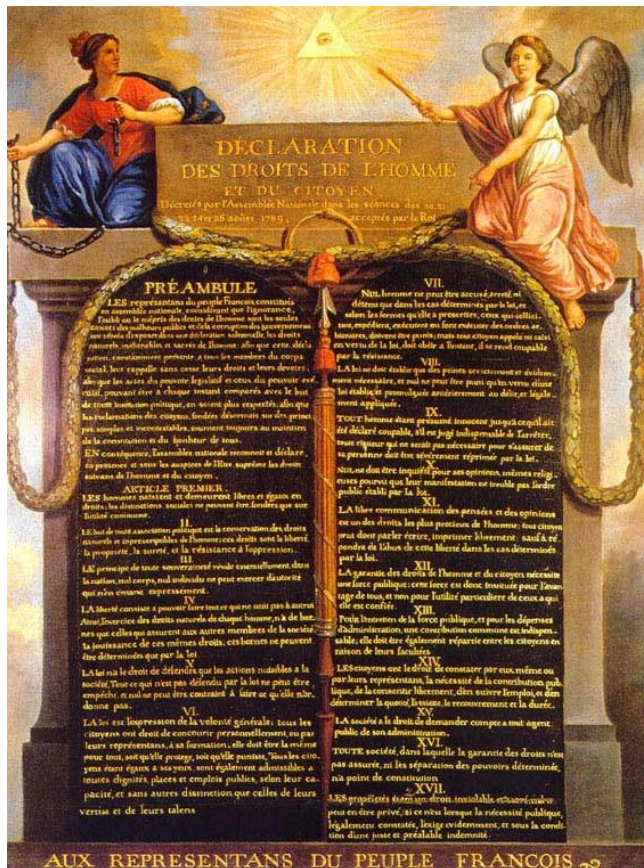 DÉCLARATION
DES DROITS DE L'HOMME
ET DU CITOYEN
Décretés par l'Assemblée Nationale dans les séances des 20, 21
23, 24 et 26 août 1789, acceptés par le Roi
PRÉAMBULE
LES représentans du peuple François, constitués
en assemblée nationale, considérant que l'ignorance,
l'oubli ou le mépris des droits de l'homme sont les seules
causes des malheurs publics et de la corruption des gouvernemens
ont résolu d'exposer dans une déclaration solemnelle, les droits
naturels, inaliénables et sacrés de l'homme: afin que cette décla
ration, constamment présente à tous les membres du corps
social, leur rappelle sans cesse leurs droits et leurs devoirs;
afin que les actes du pouvoir législatif et ceux du pouvoir exé
cutif, pouvant être à chaque instant comparés avec le but
de toute institution politique, en soient plus respectés; afin que
les réclamations des citoyens, fondées désormais sur des prin
cipes simples et incontestables, tournent toujours au maintien
de la constitution et du bonheur de tous.
EN conséquence, l'assemblée nationale reconnoit et déclare
en présence et sous les auspices de l'Être suprême les droits
suivans de l'homme et du citoyen.
ARTICLE PREMIER
LES hommes naissent et demeurent libres et égaux en
droits; les distinctions sociales ne peuvent être fondées que sur
l'utilité commune.
II.
LE but de toute association politique est la conservation des droits
naturels et imprescriptibles de l'homme; ces droits sont la liberté
la propriété, la sureté, et la résistance à l'oppression.
III.
LE principe de toute souveraineté réside essentiellement dans
la nation, nul corps, nul individu ne peut exercer d'autorité
qui n'en émane expressement.
IV
LA liberté consiste à pouvoir faire tout ce qui ne nuit pas à autrui
Ainsi, l'exercice des droits naturels de chaque homme, n'a de bor
nes que celles qui assurent aux autres membres de la société
la jouissance de ces mêmes droits; ces bornes ne peuvent
être déterminées que par la loi
V
LA loi n'a le droit de défendre que les actions nuisibles à la
société. Tout ce qui n'est pas défendu par la loi ne peut être
empêché, et nul ne peut être contraint à faire ce qu'elle n'or
donne pas.
VI.
LA loi est l'expression de la volonté générale; tous les
citoyens ont droit de concourir personnellement, ou par
leurs représentans, à sa formation; elle doit être la même
pour tous, soit qu'elle protege, soit qu'elle punisse. Tous les cito
yens étant égaux à ses yeux, sont également admissibles à
toutes dignités, places et emplois publics, selon leur ca
pacité, et sans autres distinction que celles de leurs
vertus et de leurs talens
VII.
NUL homme ne peut être accusé, arreté, ni
détenu que dans les cas déterminés par la loi, et
selon les formes qu'elle a prescrites, ceux qui sollici
tent, expédient, exécutent ou font exécuter des ordres ar
bitraires, doivent être punis; mais tout citoyen appelé ou saisi
en vertu de la loi, doit obéir à l'instant, il se rend coupable
par la résistance.
VIII.
LA loi ne doit établir que des peines strictement et évidem
ment nécessaire, et nul ne peut être puni qu'en vertu d'une
loi établie et promulguée antérieurement au délit, et légale
ment appliquée.
IX.
TOUT homme étant présumé innocent jusqu'à ce qu'il ait
été déclaré coupable, s'il est jugé indispensable de l'arrêter,
toute rigueur qui ne serait pas nécessaire pour s'assurer de
sa personne doit être sévèrement réprimée par la loi.
X.
NUL ne doit être inquiété pour ses opinions, mêmes religi
euses pourvu que leur manifestation ne trouble pas l'ordre
public établi par la loi.
XI.
LA libre communication des pensées et des opinions
est un des droits les plus precieux de l'homme; tout citoyen
peut donc parler écrire, imprimer librement: sauf à ré
pondre de l'abus de cette liberté dans les cas déterminés
par la loi.
XII.
LA garantie des droits de l'homme et du citoyen nécessite
une force publique; cette force est donc instituée pour l'avan
tage de tous, et non pour l'utilité particuliere de ceux a qui
elle est confiée.
XIII.
POUR l'entretien de la force publique, et pour les dépenses
d'administration, une contribution commune est indispen
sable; elle doit être également répartie entre les citoyens en
raison de leurs facultées
XIV.
LES citoyens ont le droit de constater par eux même ou
par leurs représentans, la nécessité de la contribution pub
lique, de la consentir librement, d'en suivre l'emploi, et d'en
déterminer la quotité, l'assiette, le recouvrement et la durée.
XV.
LA société a le droit de demander compte a tout agent
public de son administration.
XVI.
TOUTE société, dans laquelle la garantie des droits n'est
pas assurée, ni les séparation des pouvoirs déterminée,
n'a point de constitution
XVII.
LES propriétés étant un droit inviolable et sacré, nul ne
peut en être privé, si ce n'est lorsque la nécessité publique,
légalement constatée, l'exige evidemment, et sous la condi
tion d'une juste et préalable indemnité.
AUX REPRESENTANS DU PEUPLE FRANCOIS